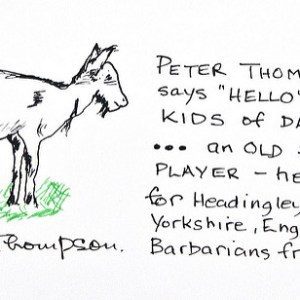 PETER THOM
says "HELLO"
KIDS of DA
... an OLD
PLAYER - he
for Headingley
Yorkshire, Eng
Barbarians fr
Thompson.